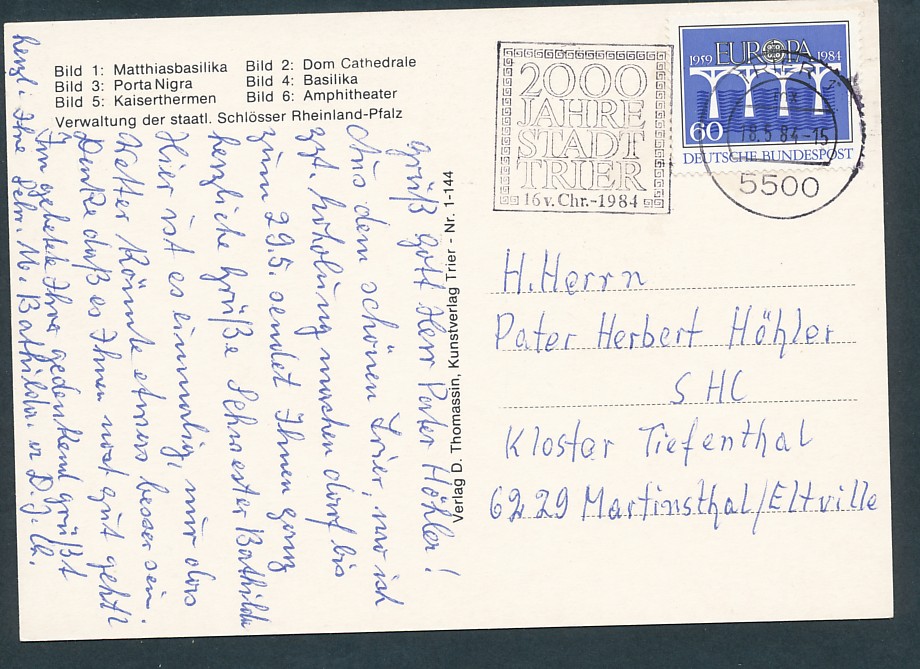 Bild 1: Matthiasbasilika Bild 2: Dom Cathedrale
Bild 3: Porta Nigra Bild 4: Basilika
Bild 5: Kaiserthermen Bild 6: Amphitheater
Verwaltung der staatl. Schlösser Rheinland-Pfalz
Grüß Gott Herr Pater Höhler!
Aus dem schönen Trier, wo ich
zzt. Erholung machen darf bis
zum 29.5. sendet Ihnen ganz
herzliche Grüße Schwester Bathilda
Hier ist es einmalig, nur das
Wetter könnte etwas besser sein.
Denke daß es Ihnen noch gut geht!
Im Gebete Ihrer gedenkend grüßt
herzl. Ihre Schw. M. Bathilda
Verlag D. Thomassin, Kunstverlag Trier - Nr. 1-144
2000
JAHRE
STADT
TRIER
16 v. Chr.-1984
EUROPA
1959 1984
60
DEUTSCHE BUNDESPOST
TRIER
18.5.84-15
5500
H. Herrn
Pater Herbert Höhler
SHC
Kloster Tiefenthal
6229 Martinsthal/Eltville